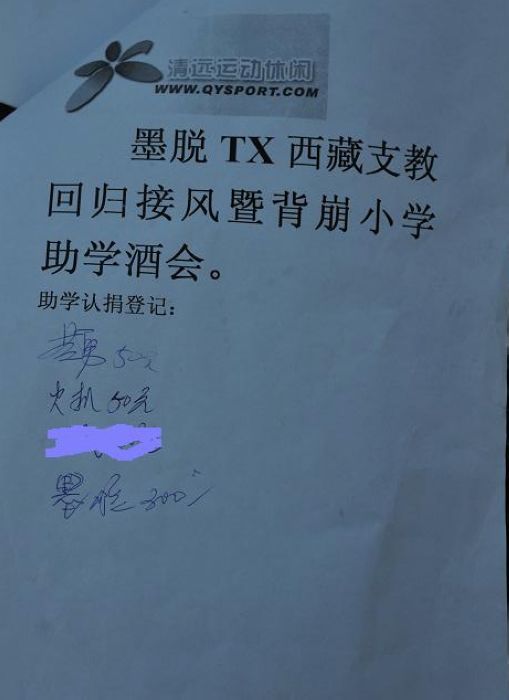 清远运动休闲
WWW.QYSPORT.COM
墨脱 TX 西藏支教
回归接风暨背崩小学
助学酒会。
助学认捐登记：
火机 50元
墨脱 300